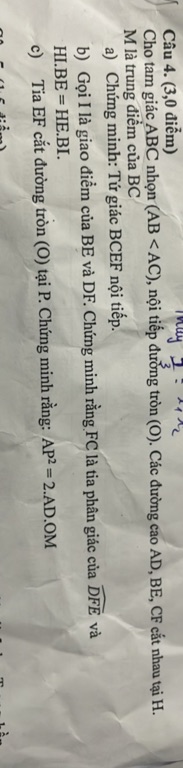 Câu 4. (3,0 điểm)
Cho tam giác ABC nhọn (AB < AC), nội tiếp đường tròn (O). Các đường cao AD, BE, CF cắt nhau tại H.
M là trung điểm của BC
a) Chứng minh: Tứ giác BCEF nội tiếp.
b) Gọi I là giao điểm của BE và DF. Chứng minh rằng FC là tia phân giác của \widehat{DFE} và
HI.BE = HE.BI.
c) Tia EF cắt đường tròn (O) tại P. Chứng minh rằng: AP² = 2.AD.OM